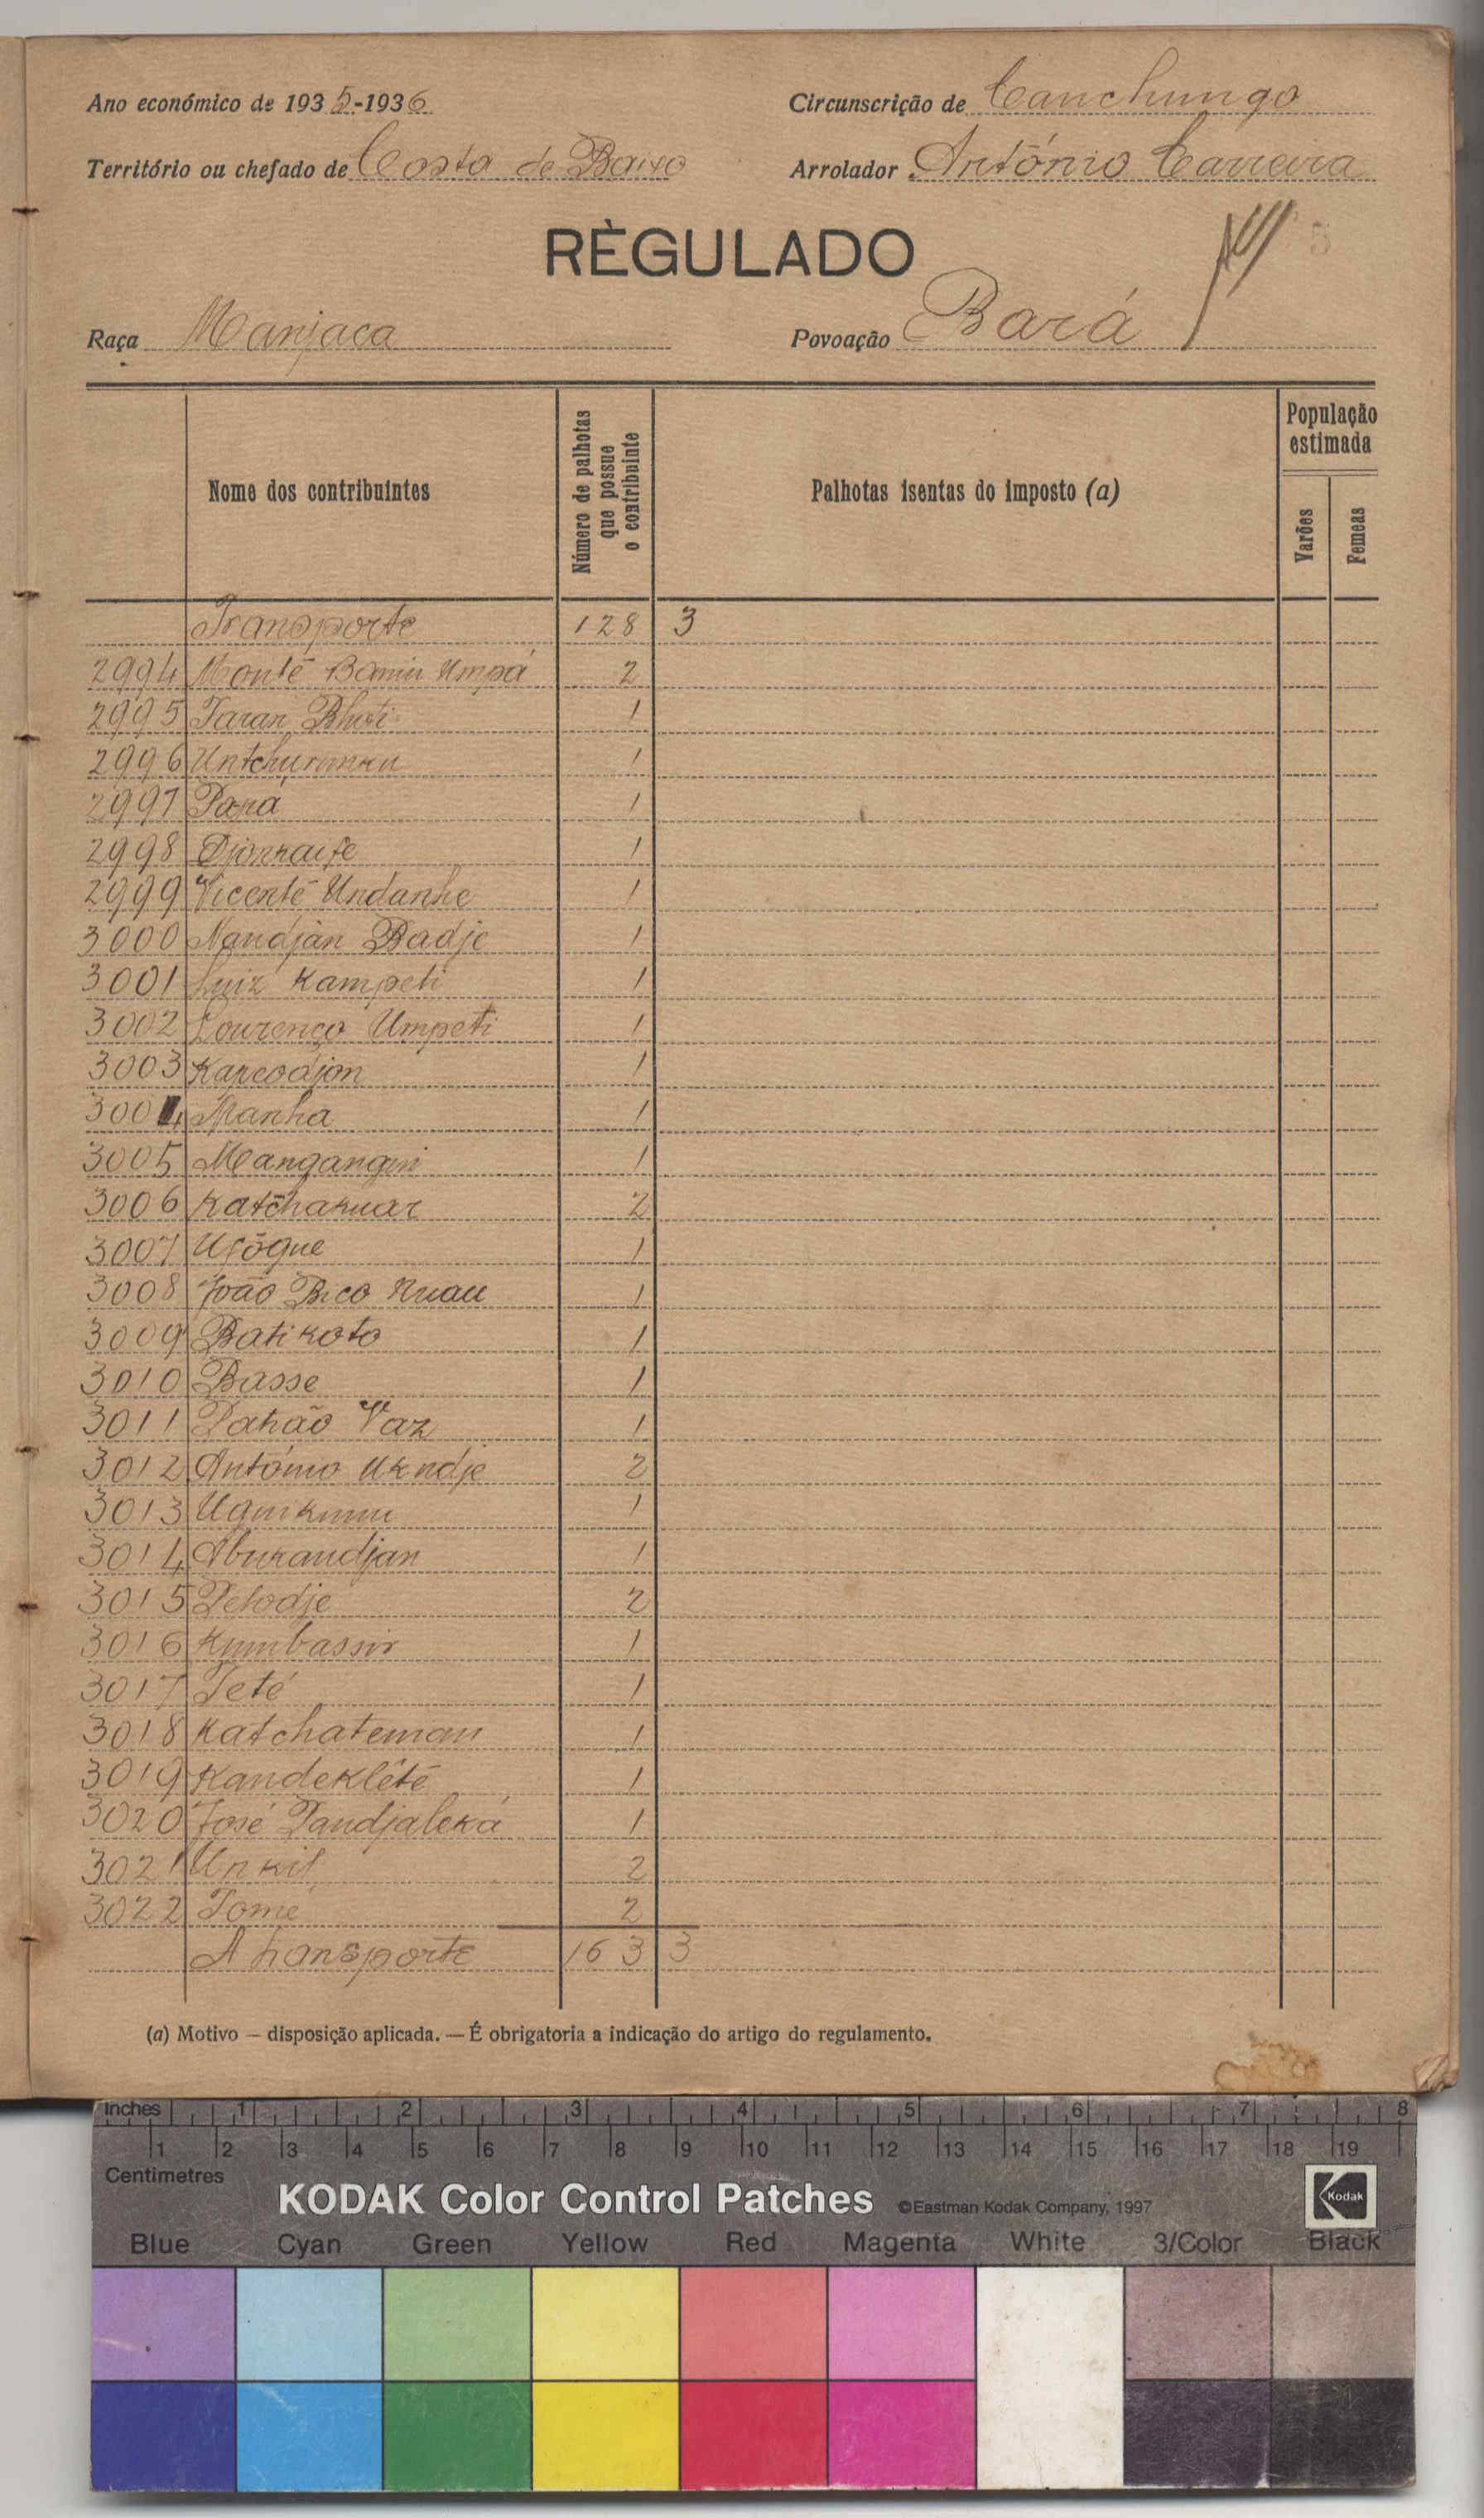 Ano económico de 1935-1936 Circunscrição de Canchungo
Território ou chefado de Costa de Baixo Arrolador António Carreira
RÈGULADO
Raça Manjaca Povoação Bará
Nome dos contribuintes
Número de palhotas que possue o contribuinte
Palhotas isentas do imposto (a)
População estimada
Varões
Femeas
Transporte 128 3
2994 Monté Baniu Umpá 2
2995 Taran 1
2996 1
2997 Paná 1
2998 1
2999 Vicenté Undanhe 1
3000 Nandján Badje 1
3001 Luiz Kampeti 1
3002 Lourenço Umpeti 1
3003 1
3004 Manha 1
3005 Mangangui 1
3006 Katchakuar 2
3007 1
3008 João Bico 1
3009 Batikoto 1
3010 Basse 1
3011 Vaz 1
3012 António 2
3013 1
3014 1
3015 2
3016 Kumbassir 1
3017 Teté 1
3018 Katchateman 1
3019 Kandekleté 1
3020 José 1
3021 2
3022 Tomé 2
A transporte 163 3
(a) Motivo — disposição aplicada. — É obrigatoria a indicação do artigo do regulamento.
Inches 1 2 3 4 5 6 7 8
1 2 3 4 5 6 7 8 9 10 11 12 13 14 15 16 17 18 19
Centimetres
KODAK Color Control Patches ©Eastman Kodak Company, 1997 Kodak
Blue Cyan Green Yellow Red Magenta White 3/Color Black